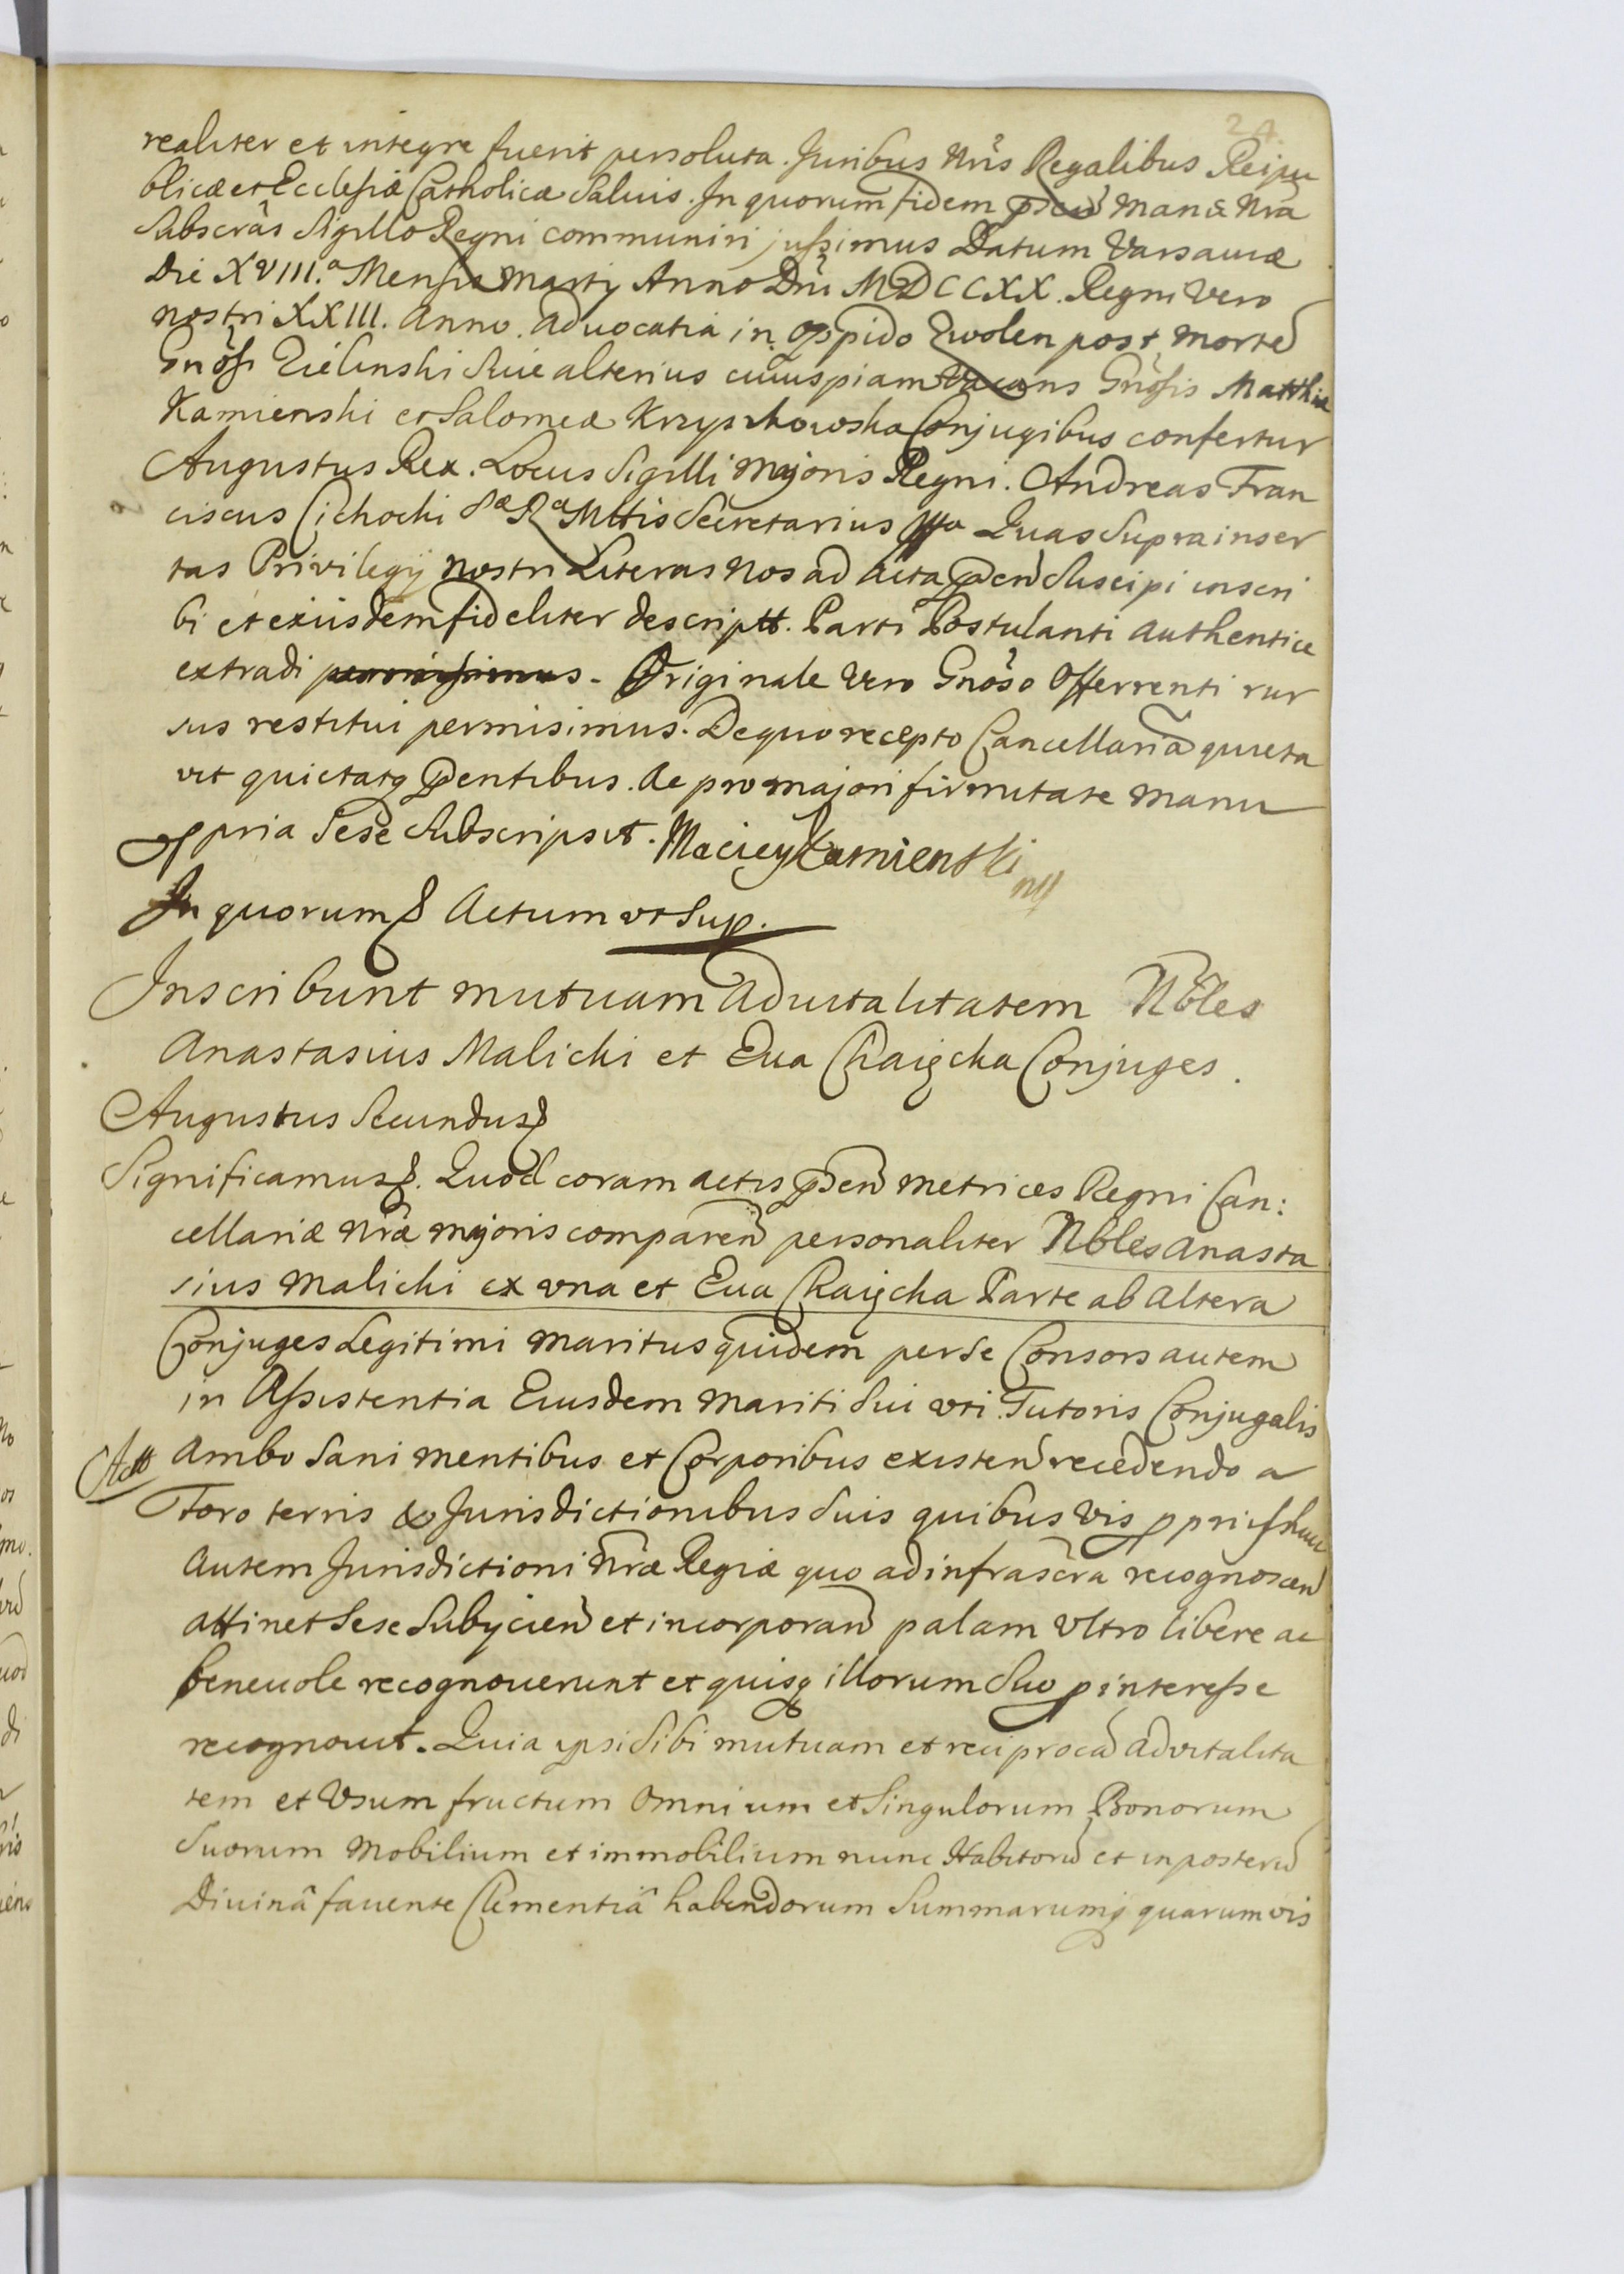 24
realiter et integre fuerit persoluta. Juribus Nrĩs Regalibus Reipu
blicæ et Ecclesiæ Catholicæ Salvis. In quorum fidem pñtes Manu Nrã
Subscrãs Sigillo Regni communiri jussimus Datum Varsaviæ
Die XVIII.ª Mensis Martij Anno Dnĩ MDCCXX. Regni vero
nostri XXIII. Anno. Advocatia in Oppido Zwolen post morte
Gnõsi Zielinski sive alterius cuiuspiam vacans Gnõsis Matthiæ
Kamienski et Salomeæ Krzyszkowska Conjugibus confertur
Augustus Rex. Locus Sigilli Majoris Regni. Andreas Fran
ciscus Cichocki Sæ Ræ Mttis Secretarius Quas Suprainser
tas Privilegij nostri Literas Nos ad Acta pñden Suscipi inscri
bi et exiisdem fideliter descriptt. Parti Postulanti authentice
extradi permisimus. Originale vero Gnõso Offerrenti rur
sus restitui permisimus. De quo recepto Cancellariã quieta
vit quietatq pñdentibus. Ac pro majori firmitate manu
ppria Sese Subscripsit. Maciey Kamienski mp
In quorum Actum ut Sup.
Inscribunt mutuam advitalitatem Nbles
Anastasius Malicki et Eva Chaięcka Conjuges.
Augustus Secundus
Significamus. Quod coram actis pñden Metrices Regni Can:
cellariæ Nræ majoris comparen personaliter Nbles Anasta
sius Malicki ex una et Eva Chaięcka Parte ab altera
Conjuges Legitimi maritus quidem per se Consors autem
in Assistentia Eiusdem mariti sui uti Tutoris Conjugalis
Ambo Sani mentibus et Corporibus existen recedendo a
Foro terris & Jurisdictionibus suis quibusvis pprijs huic
autem Jurisdictioni Nræ Regiæ quo ad infrascra recognoscen
attinet Sese Subijcien et incorporan palam ultro libere ac
benevole recognoverunt et quisq illorum Suo pinteresse
recognovit. Quia ipsi Sibi mutuam et reciprocã advitalita
tem et Usum fructum omnium et Singulorum Bonorum
Suorum Mobilium et immobilium nunc Habitorũ et inposterũ
Divinâ favente Clementiâ habendorum Summarumq quarumvis